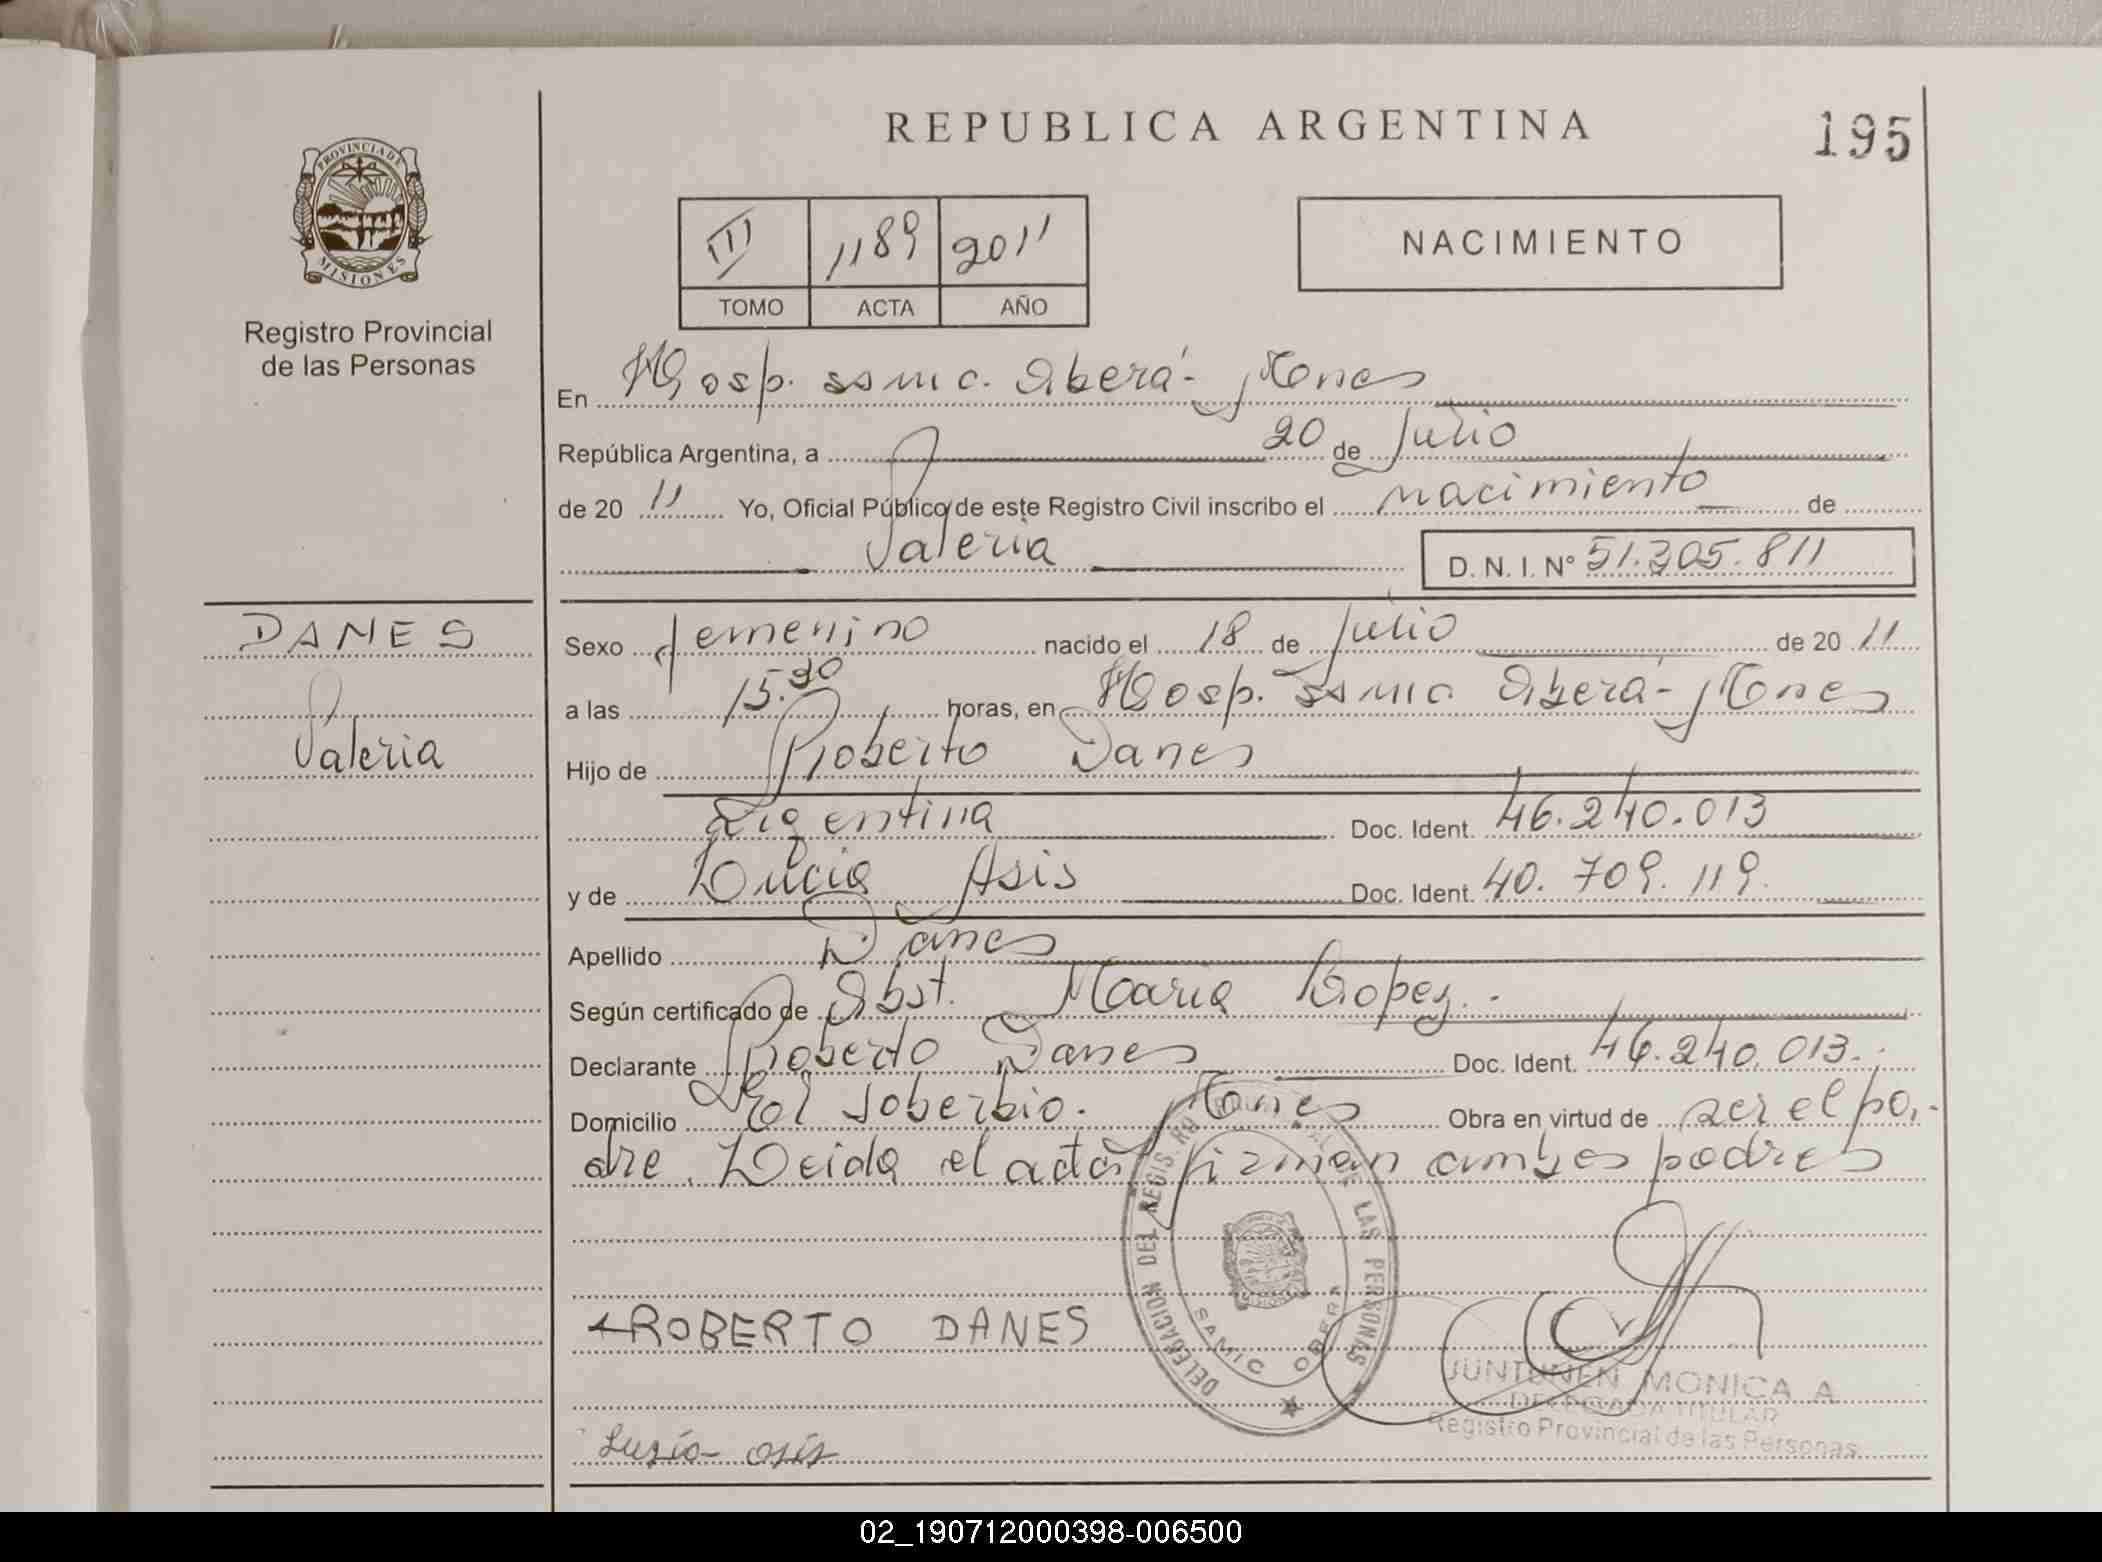 REPUBLICA ARGENTINA
195
PROVINCIA DE MISIONES
Registro Provincial
de las Personas
III 1189 2011
TOMO ACTA AÑO
NACIMIENTO
En Hosp. Samic. Oberá - Mones
República Argentina, a 20 de Julio
de 20 11 Yo, Oficial Público de este Registro Civil inscribo el nacimiento de
Valeria D. N. I. N° 51.305.811
DANES
Valeria
Sexo femenino nacido el 18 de Julio de 20 11
a las 15.30 horas, en Hosp. Samic Oberá - Mones
Hijo de Roberto Danes
Argentina Doc. Ident. 46.240.013
y de Lucia Asis Doc. Ident. 40.709.119.
Apellido Danes
Según certificado de Obst. Maria Lopez.-
Declarante Roberto Danes Doc. Ident. 46.240.013.
Domicilio El Soberbio. Mones Obra en virtud de ser el pa-
dre. Leida el acta firman ambos padres
DELEGACION DEL REGIS. PROVINCIAL DE LAS PERSONAS
SAMIC OBERA
MISIONES
ROBERTO DANES
JUNTUNEN MONICA A
DELEGADA TITULAR
Registro Provincial de las Personas
Lusia asis
02_190712000398-006500